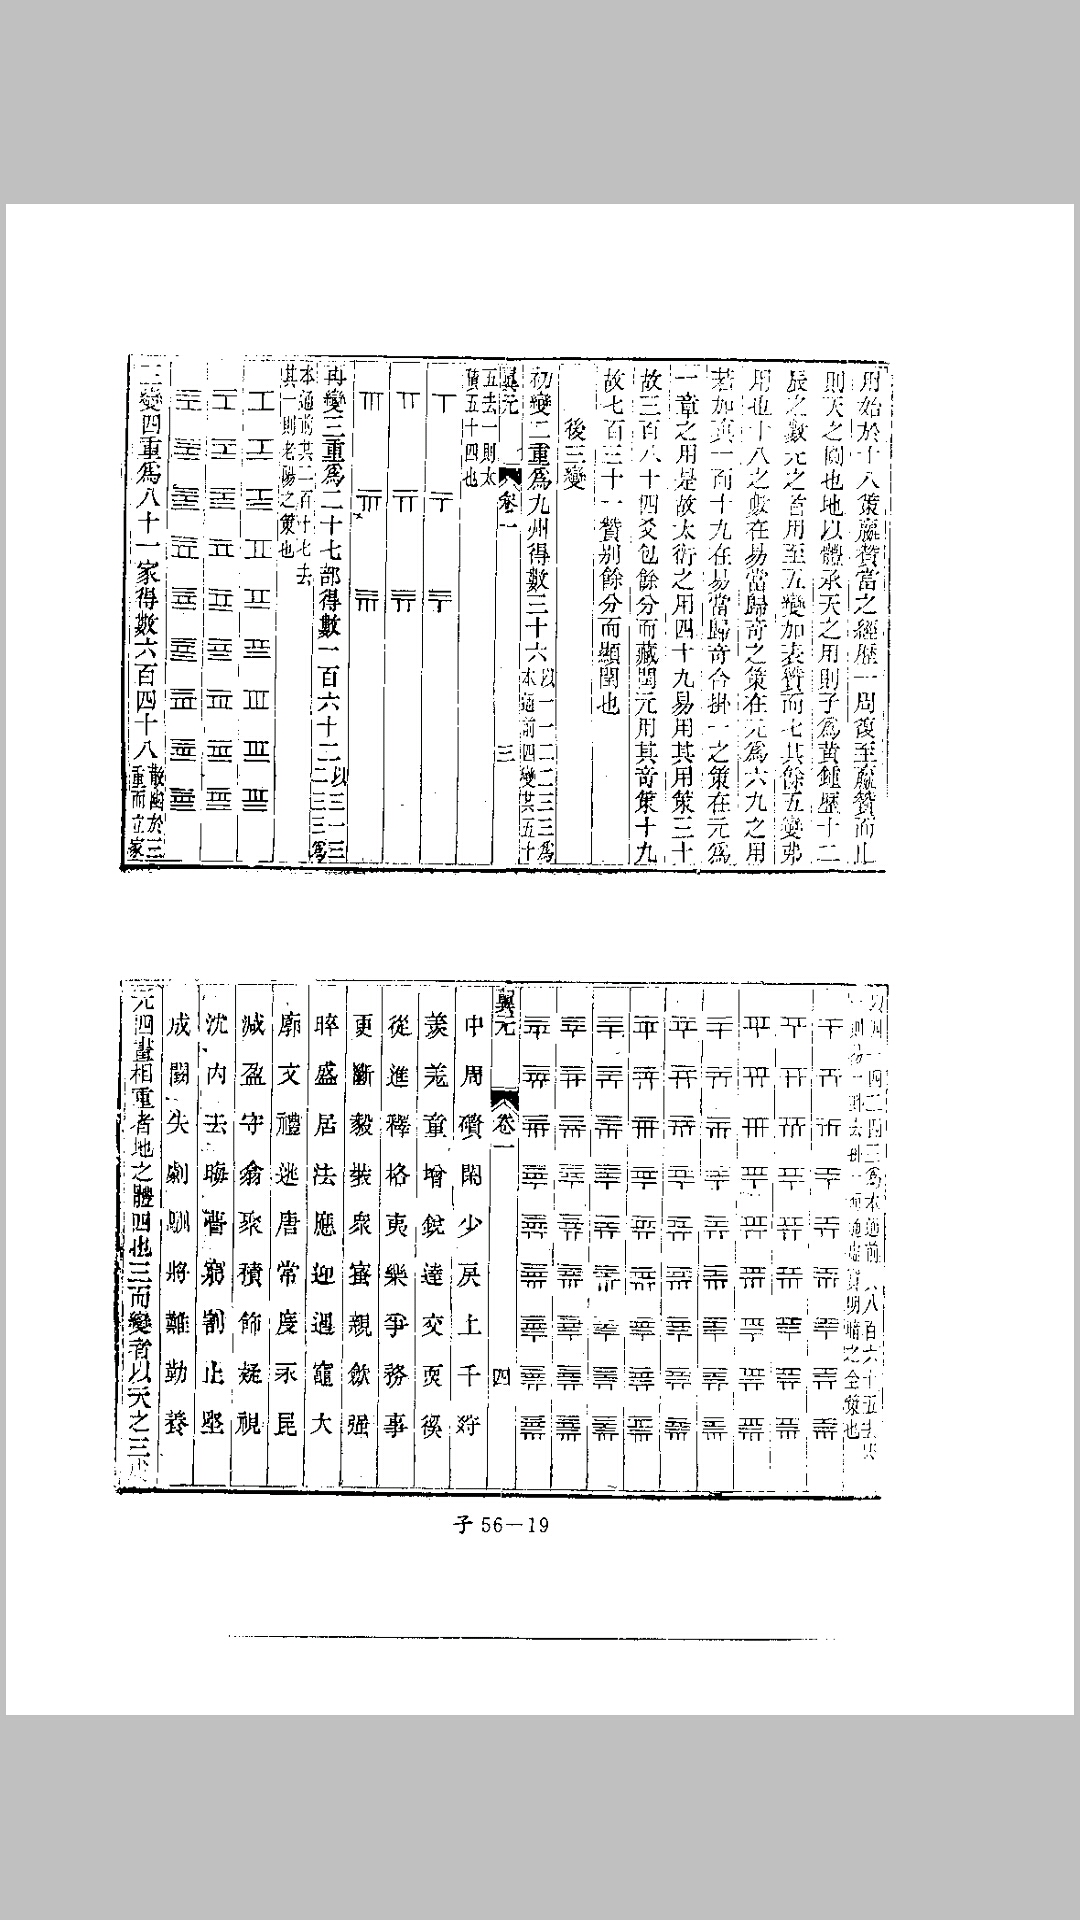 用始於十八策羸贊當之經歷一周復至羸贊而止
則天之圓也地以體承天之用則子為黃鍾歷十二
辰之數元之首用至五變加表贊而七其餘五變弗
用也十八之數在易當歸奇之策在元為六九之用
若加其一而十九在易當歸奇合掛一之策在元為
一章之用是故太衍之用四十九易用其用策三十
故三百八十四爻包餘分而藏閏元用其奇策十九
故七百三十一贊别餘分而顯閏也
後三變
初變二重爲九州得數三十六以一一二二三三爲
本通前四變共五十
翼元 卷一 三
五去一則太
積五十四也
再變三重爲二十七部得數一百六十二以三一三
二三三爲
本通前共二百十七去
其一則老陽之策也
三變四重爲八十一家得數六百四十八散幽於三
重而立家
以四一四二四三爲本通前 八百六十五
翼元 卷一 四
中周礥閑少戾上干狩
羨羌童增銳達交耎徯
從進釋格夷樂爭務事
更斷毅裝衆密親斂强
睟盛居法應迎遇竈大
廓文禮逃唐常度永昆
減盈守翕聚積飾疑視
沈内去晦瞢窮割止堅
成闕失劇馴將難勤養
元四畫相重者地之體四也三而變者以天之三
子 56－19